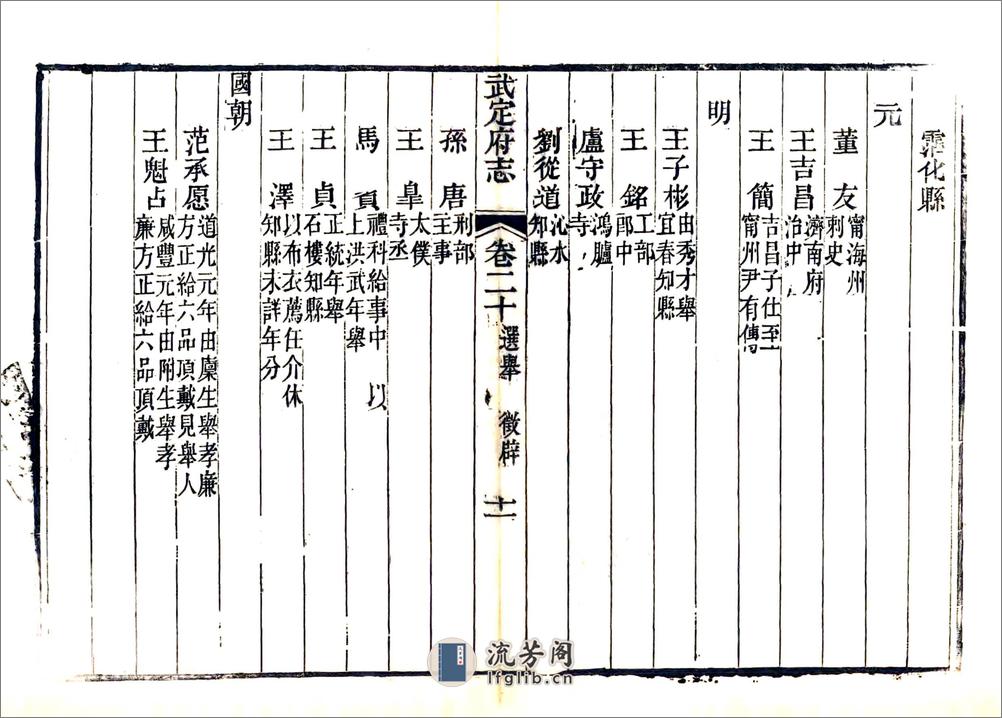 霑化縣
元
董友 甯海州
刺史
王吉昌 濟南府
治中
王簡 吉昌子仕至
甯州尹有傳
明
王子彬 由秀才舉
宜春知縣
王銘 工部
郎中
盧守政 鴻臚
寺
劉從道 沁水
知縣
武定府志 卷二十 選舉 徵辟 十一
孫唐 刑部
主事
王臯 太僕
寺丞
馬 禮科給事中 以
上洪武年舉
王貞 正統年舉
石樓知縣
王澤 以布衣薦任介休
知縣未詳年分
國朝
范承愿 道光元年由廩生舉孝廉
方正給六品頂戴見舉人
王魁占 咸豐元年由附生舉孝
廉方正給六品頂戴
流芳阁
lfglib.cn